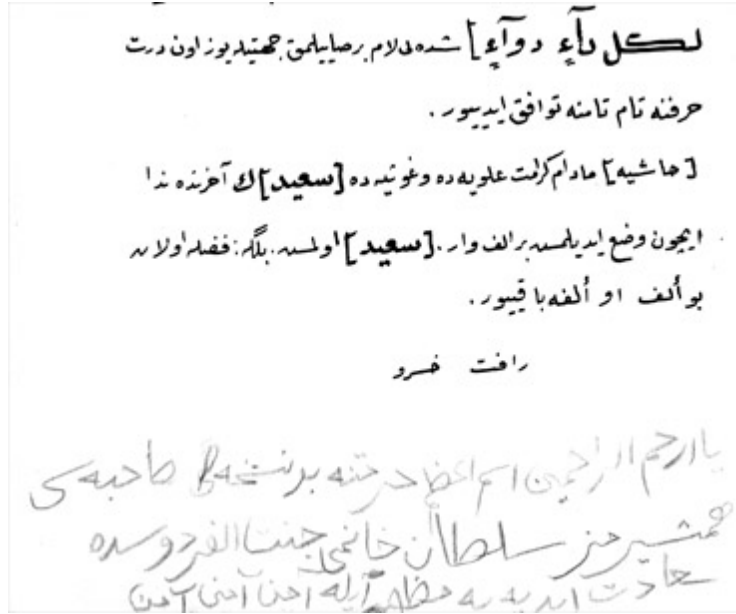 لكل دآءٍ دوآءٍ] شده‌لى لام بر صاييلمق جهتيله يوز اون درت
حرفنه تام تامنه توافق ايدييور.
[حاشيه] مادام كرامت علويه‌ده و غوثيه‌ده [سعيد]ك آخرنده ندا
ايچون وضع ايديلمش بر الف وار. [سعيد] اولمش. بلكه: فضله اولان
بو ألف او ألفه باقييور.
رافت خسرو
يا ارحم الراحمين اسم اعظم حرمتنه بو نسخه‌نڭ صاحبه‌سى
همشيره‌مز سلطان خانمى جنت الفردوسده
سعادت ابديه‌يه مظهر ايله آمين آمين آمين